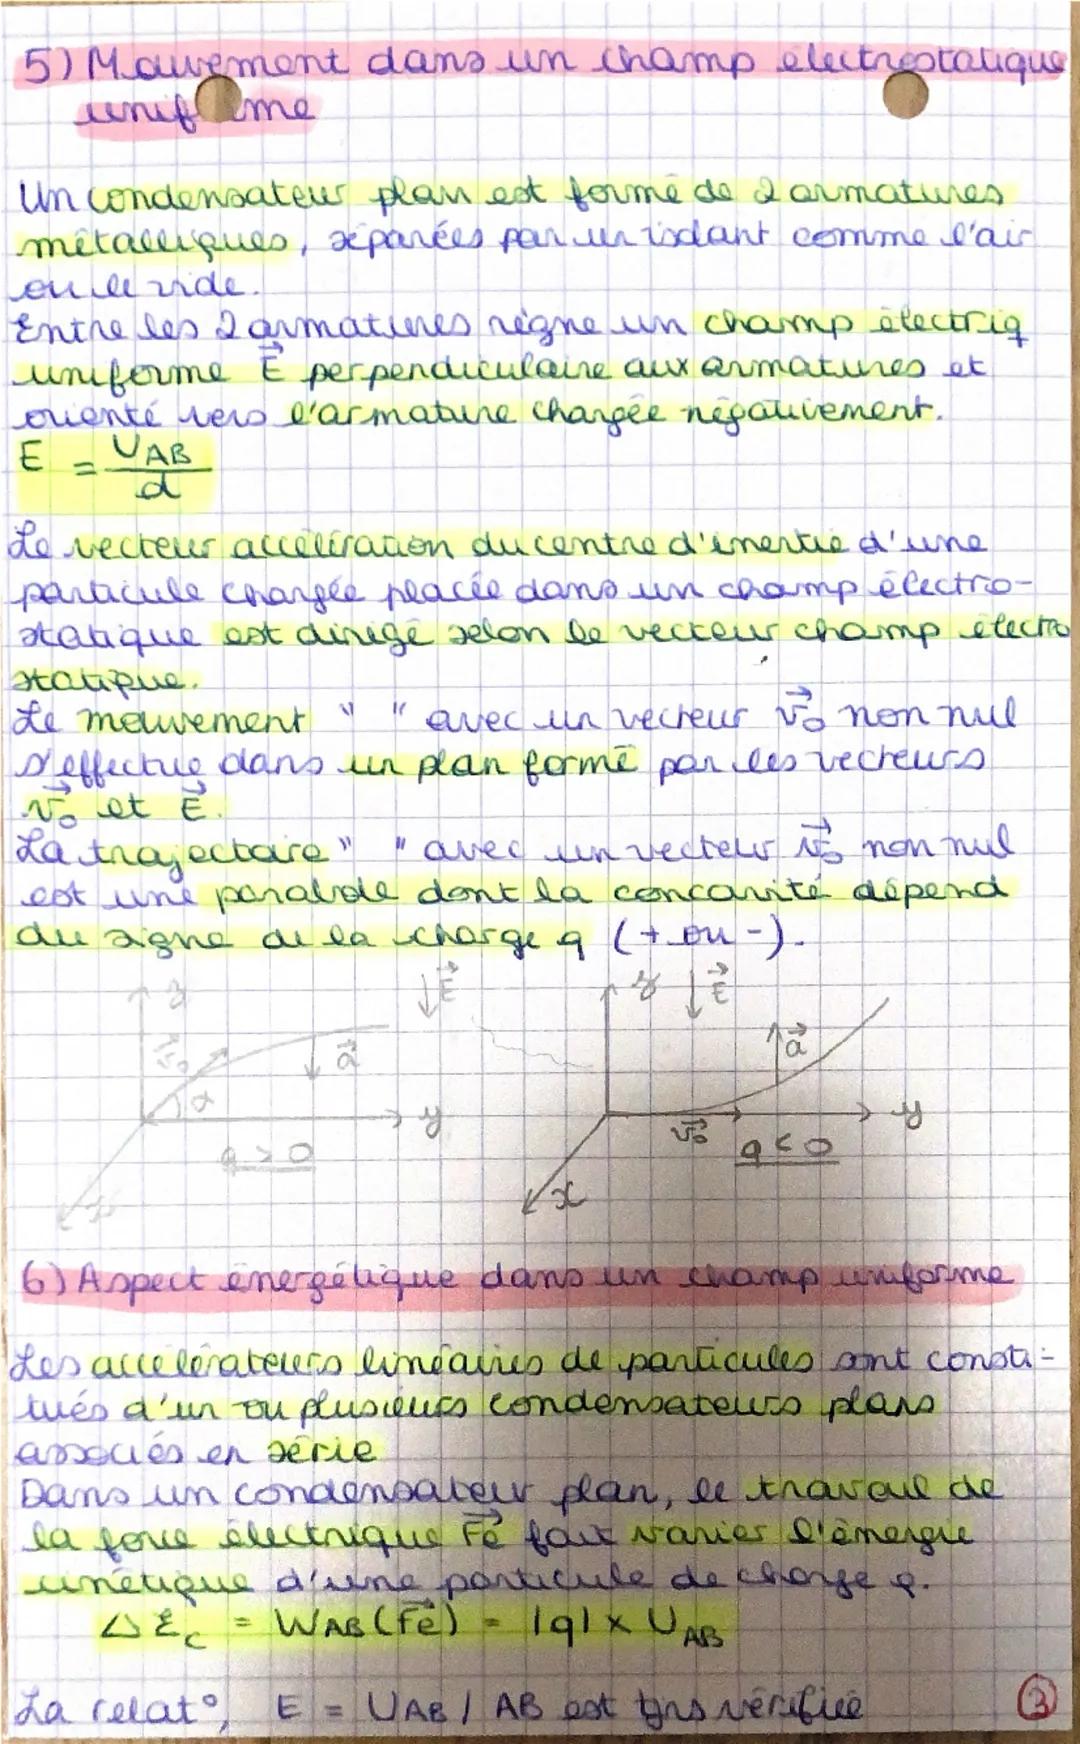 5) Mouvement dans un champ électrostatique
unif me
Un condensateur plan est formé de 2 armatures
métalliques, séparées par un isolant comme l'air
ou le vide.
Entre les 2 armatures règne un champ électriq
uniforme E⃗ perpendiculaire aux armatures et
orienté vers l'armature chargée négativement.
E = U_AB / d
Le vecteur accélération du centre d'inertie d'une
particule chargée placée dans un champ électro-
statique est dirigé selon le vecteur champ électro
statique.
Le mouvement " " avec un vecteur v₀⃗ non nul
s'effectue dans un plan formé par les vecteurs
v₀⃗ et E⃗.
La trajectoire " " avec un vecteur v₀⃗ non nul
est une parabole dont la concavité dépend
du signe de la charge q (+ ou -).
z E⃗ v₀⃗ α a⃗ y x
q > 0
z E⃗ a⃗ v₀⃗ y x
q < 0
6) Aspect énergétique dans un champ uniforme
Les accélérateurs linéaires de particules sont consti-
tués d'un ou plusieurs condensateurs plans
associés en série
Dans un condensateur plan, le travail de
la force électrique Fe⃗ fait varier l'énergie
cinétique d'une particule de charge q.
Δ Ec = W_AB (Fe⃗) = |q| x U_AB
La relat°, E = U_AB / AB est tjrs vérifiée
3